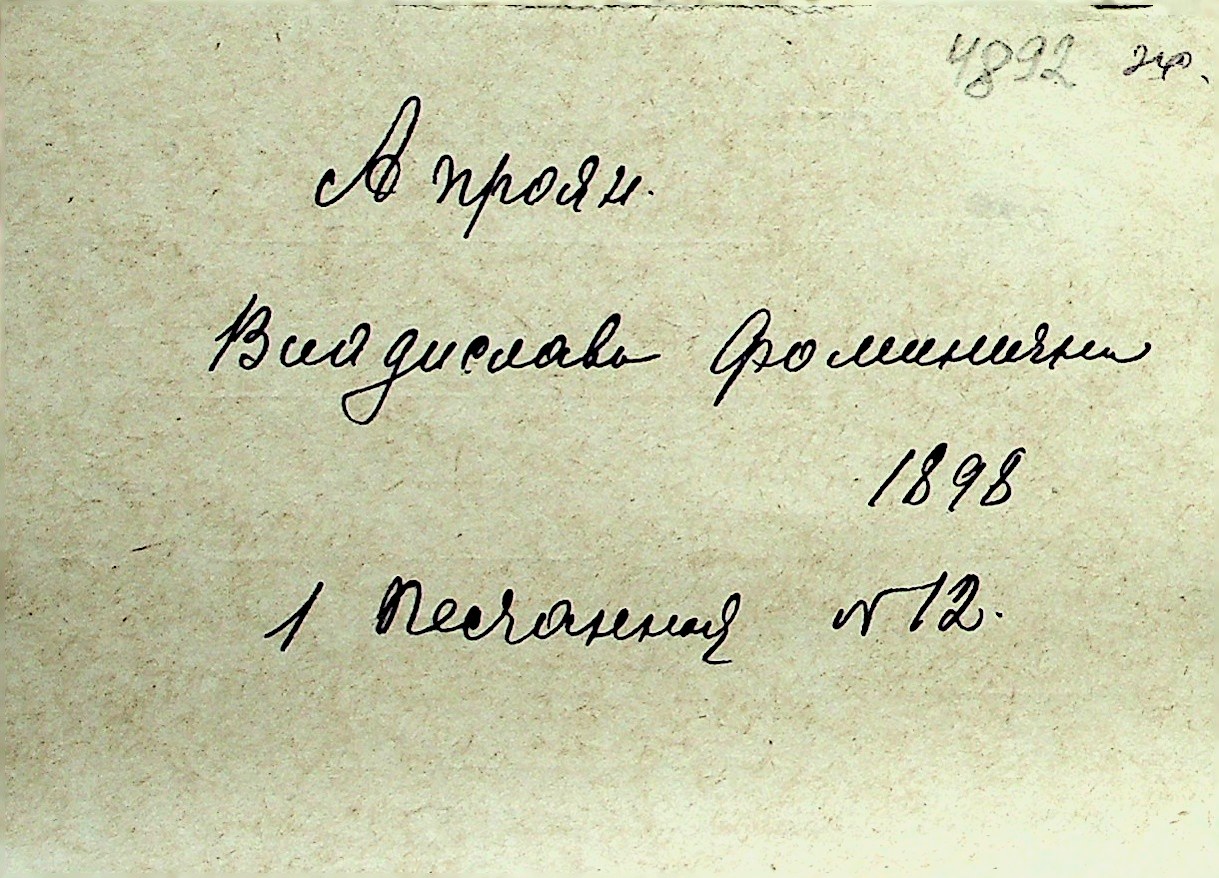 4892
Апроян.
Владислава Фоминична
1898
1 Песчанная №12.